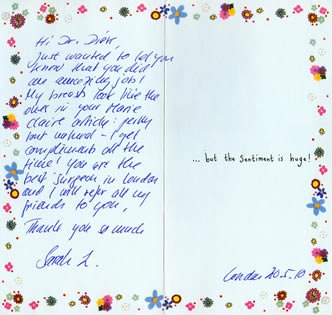 Hi Dr. Dirk,
just wanted to let you
know that you did
an amazing job!
My breasts look like the
ones in your Marie
Claire article: perky
but natural - I get
compliments all the
time! You are the
best surgeon in London
and I will refer all my
friends to you!
Thank you so much
Sarah L.
... but the sentiment is huge!
London 20.5.10